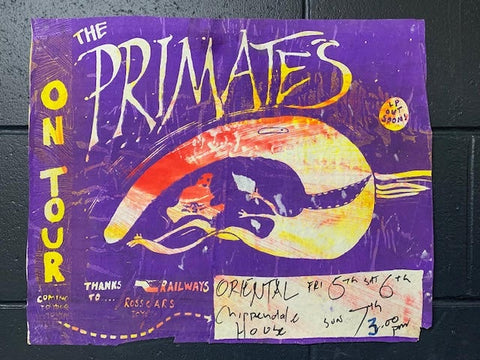 THE
PRIMATE'S
ON TOUR
LP
OUT
SOON!
COMING
THANKS
TO....
RAILWAYS
ROSSCARS
ORIENTAL FRI 5th SAT 6th
Chippendale
House
SUN 7th
3.00
pm